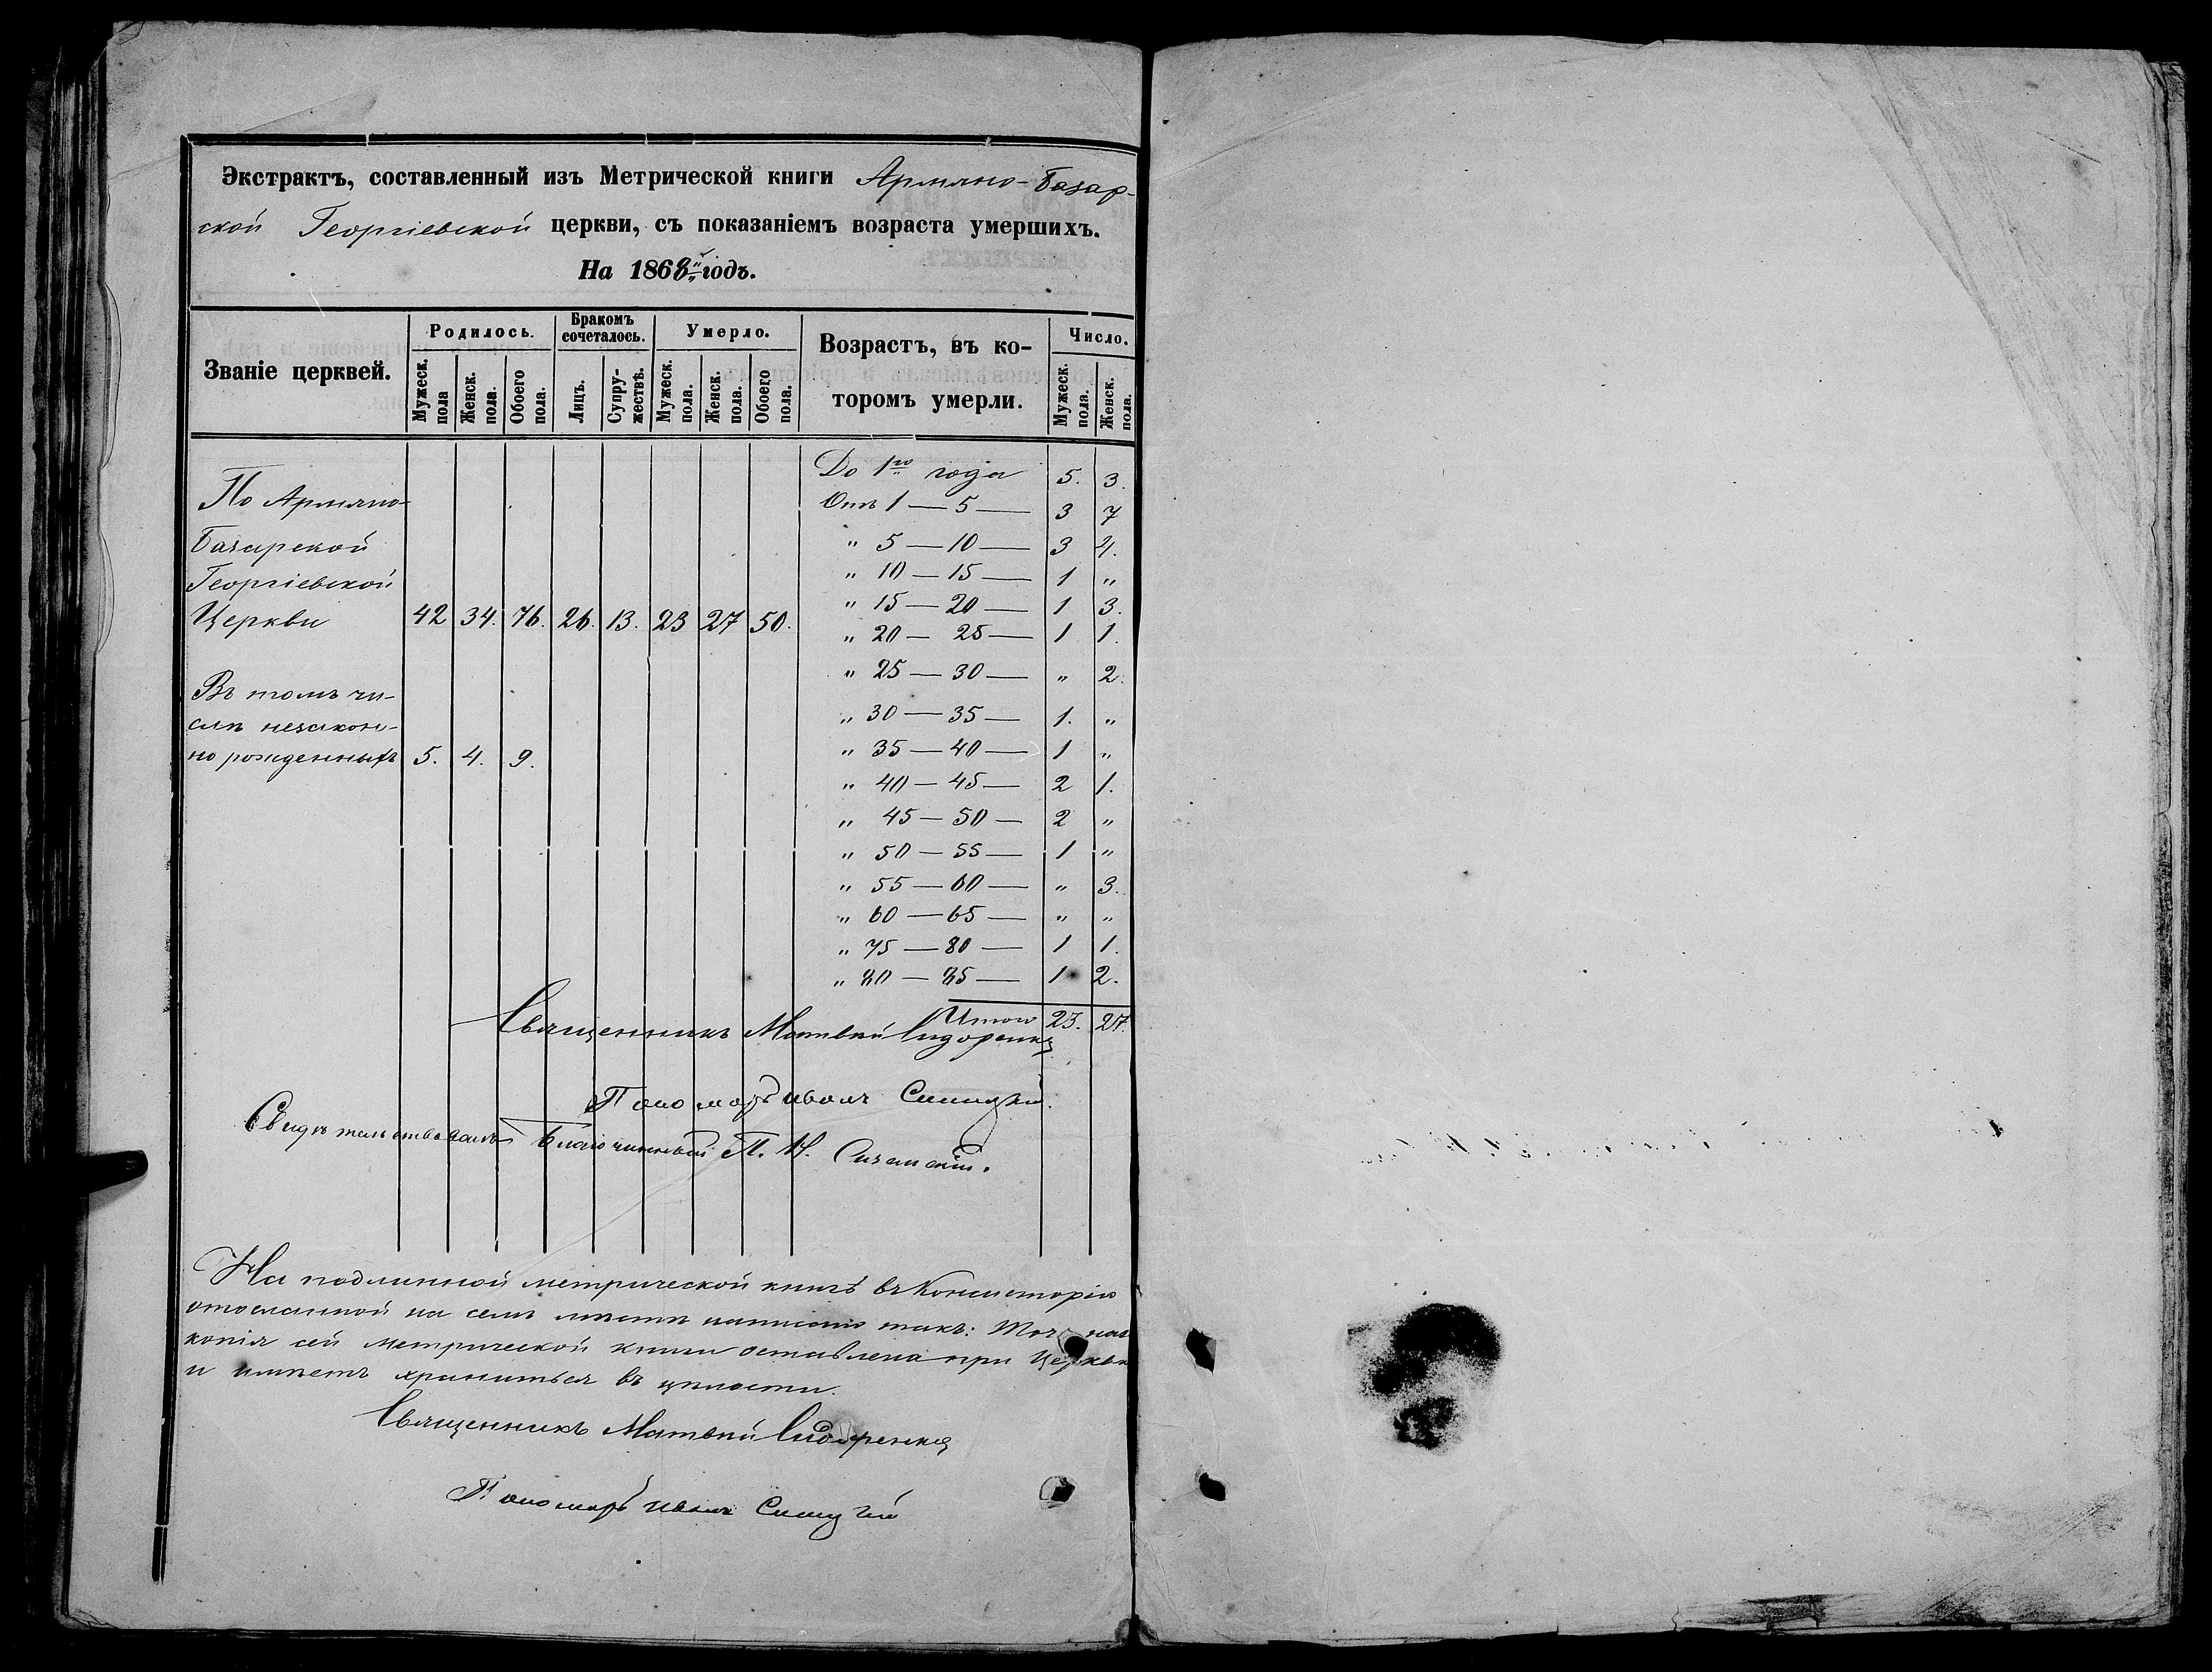 Экстрактъ, составленный изъ Метрической книги Армяно-Базар-
ской Георгіевской церкви, съ показаніемъ возраста умершихъ.
На 1868й годъ.
Званіе церквей.
Родилось.
Мужеск. пола
Женск. пола.
Обоего пола.
Бракомъ сочеталось.
Лицъ.
Супру-жествъ.
Умерло.
Мужеск. пола.
Женск. пола.
Обоего пола.
Возрастъ, въ ко-
торомъ умерли.
Число.
Мужеск. пола.
Женск. пола.
По Армяно-
Базарской
Георгіевской
Церкви 42 34. 76. 26. 13. 23 27 50.
Въ томъ чи-
слѣ незакон-
но рожденныхъ 5. 4. 9.
До 1го года 5. 3.
Отъ 1 — 5 — 3 7
" 5 — 10 — 3 4.
" 10 — 15 — 1 "
" 15 — 20 — 1 3.
" 20 — 25 — 1 1.
" 25 — 30 — " 2.
" 30 — 35 — 1. "
" 35 — 40 — 1 "
" 40 — 45 — 2 1.
" 45 — 50 — 2 "
" 50 — 55 — 1 "
" 55 — 60 — " 3.
" 60 — 65 — " "
" 75 — 80 — 1 1.
" 80 — 85 — 1 2.
Итого 23. 27.
Священникъ Матвѣй Сидоренко
Пономарь Иванъ
Свидѣтельствовалъ Благочинный П. Н.
На подлинной метрической книгѣ въ Консисторію
отосланной на семъ мѣстѣ написано такъ: Точная
копія сей метрической книги оставлена при Церкви
и имѣетъ храниться въ цѣлости.
Священникъ Матвѣй Сидоренко
Пономарь Иванъ